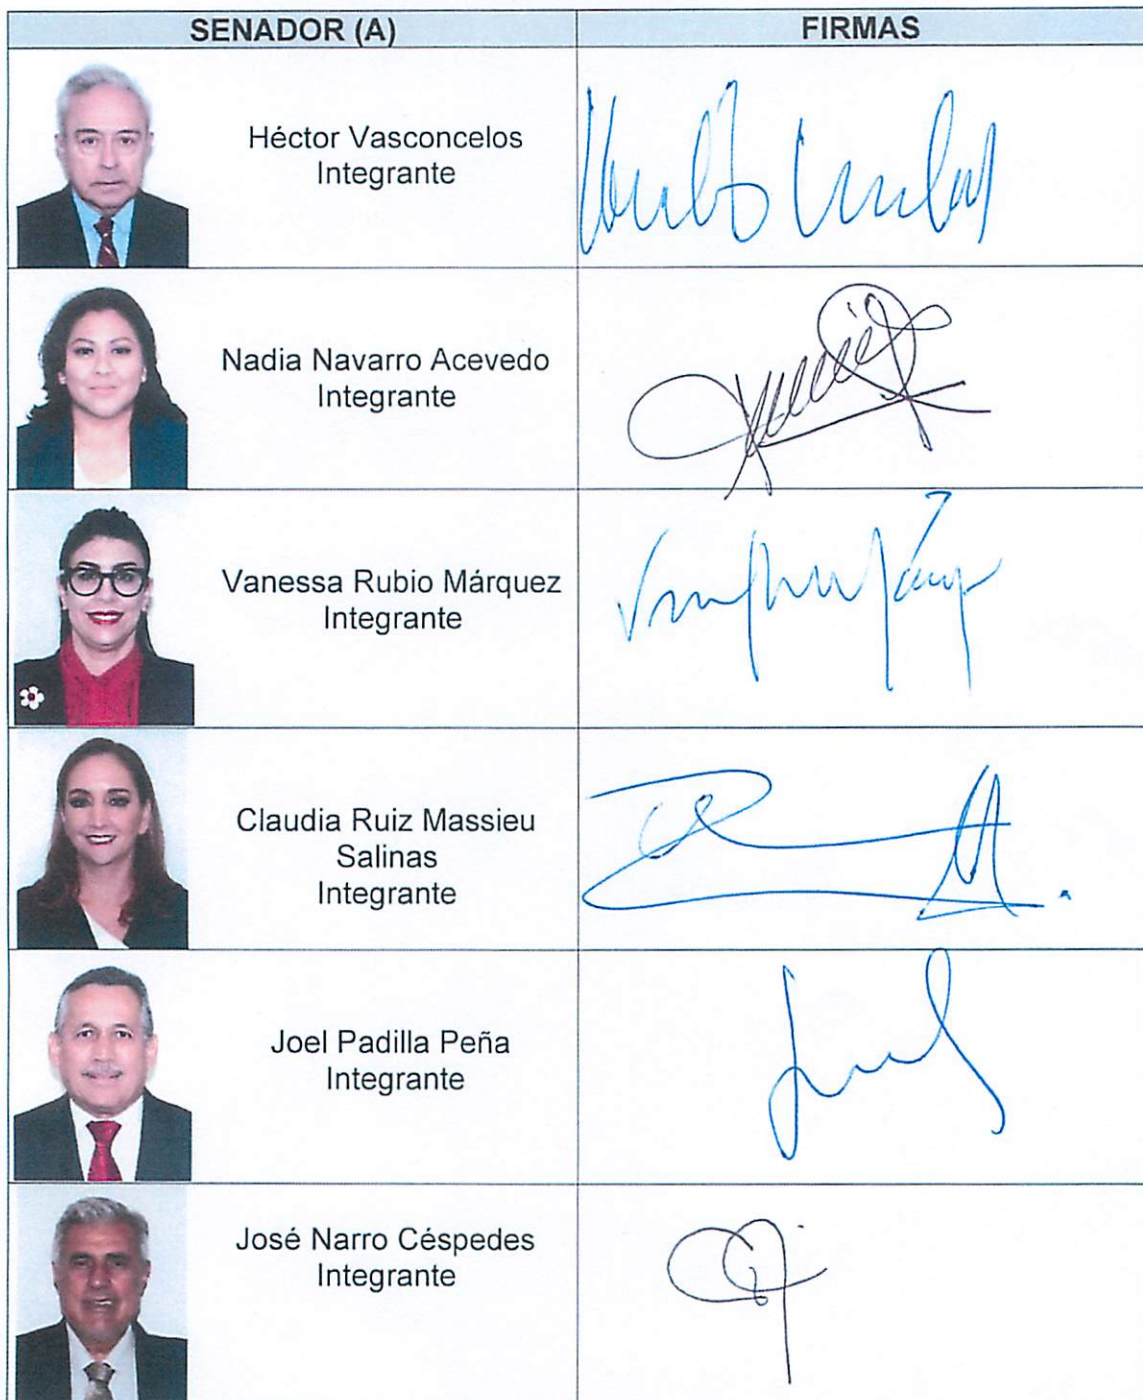 SENADOR (A)
FIRMAS
Héctor Vasconcelos
Integrante
Nadia Navarro Acevedo
Integrante
Vanessa Rubio Márquez
Integrante
Claudia Ruiz Massieu
Salinas
Integrante
Joel Padilla Peña
Integrante
José Narro Céspedes
Integrante